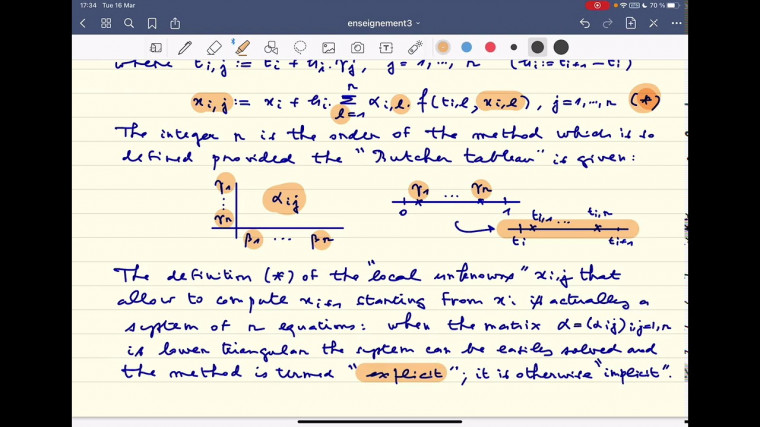 17:34 Tue 16 Mar
70 %
enseignement3
where ti,j := ti + hi.γj, j = 1,...,r (hi := ti+1 − ti)
xi,j := xi + hi. Σ_{l=1}^{r} αj,l. f(ti,l, xi,l), j = 1,...,r (*)
The integer r is the order of the method which is so
defined provided the "Butcher tableau" is given:
γ1 αij γ1 ... γr
⋮
γr 0 1 ti,1 ... ti,r
β1 ... βr ti ti+1
The definition (*) of the "local unknowns" xi,j that
allow to compute xi+1 starting from xi is actually a
system of r equations: when the matrix α=(αij)i,j=1,r
is lower triangular the system can be easily solved and
the method is termed "explicit"; it is otherwise "implicit".